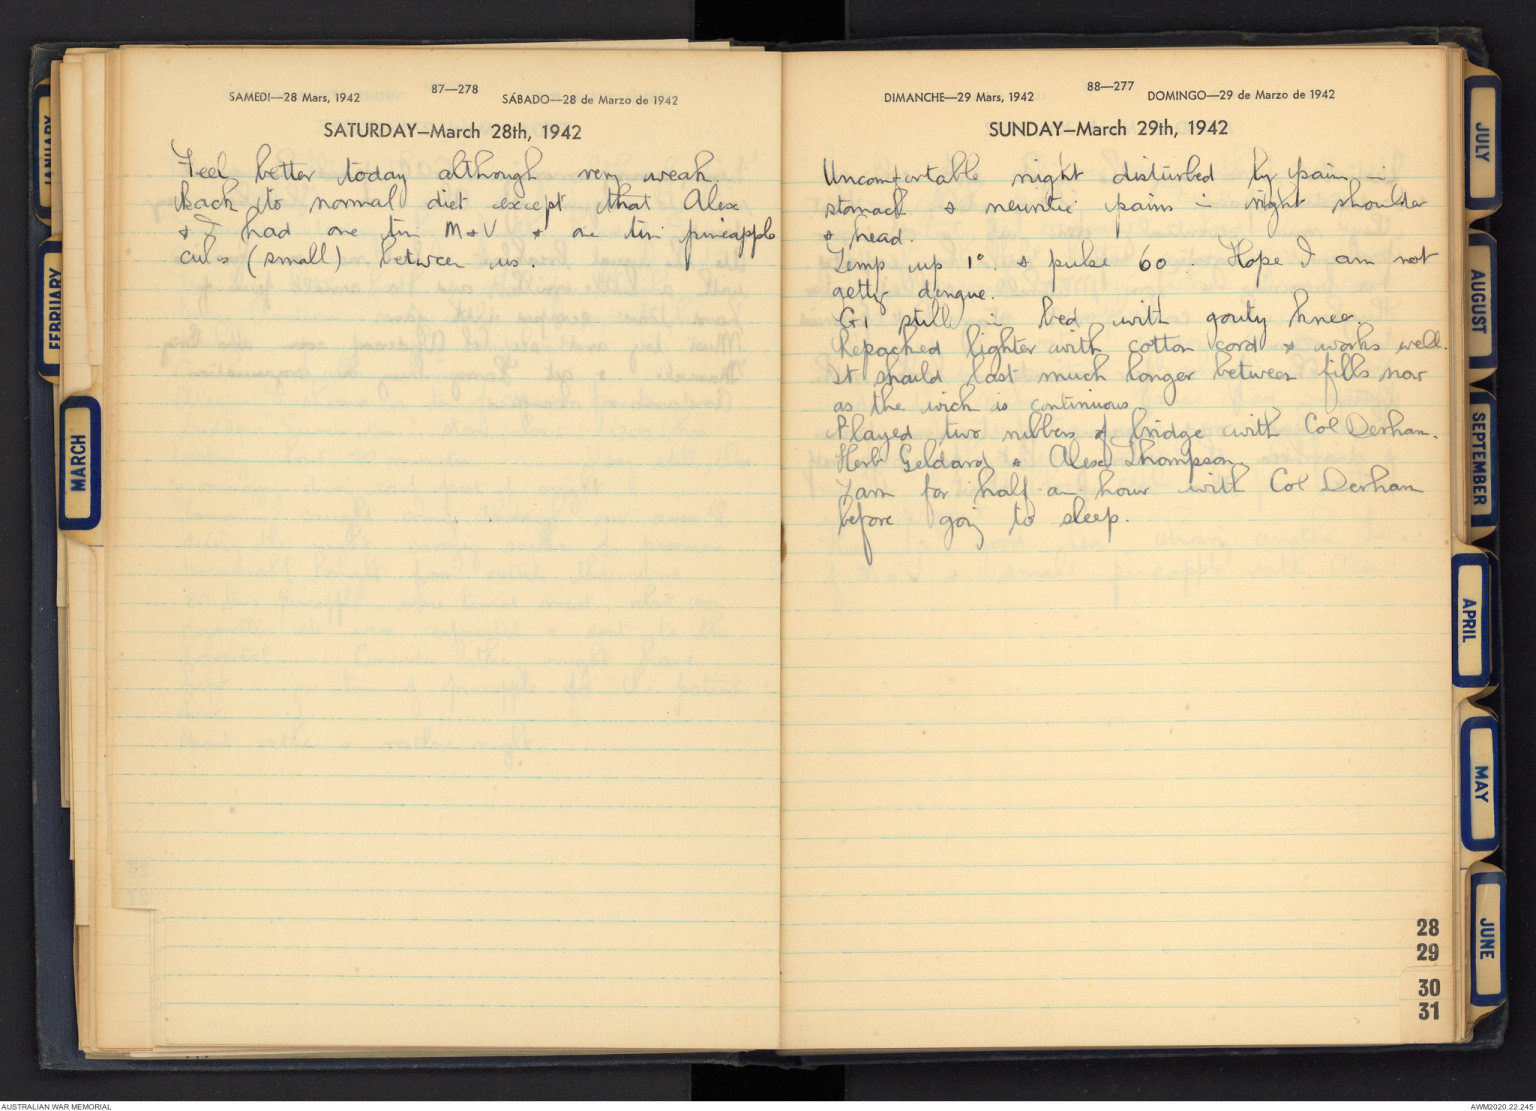 SAMEDI—28 Mars, 1942
87—278
SÁBADO—28 de Marzo de 1942
SATURDAY—March 28th, 1942
Feel better today although very weak.
Back to normal diet except that Alex
& I had one tin M & V & one tin pineapple
cubes (small) between us.
DIMANCHE—29 Mars, 1942
88—277
DOMINGO—29 de Marzo de 1942
SUNDAY—March 29th, 1942
Uncomfortable night disturbed by pain in
stomach & neuritic pains in right shoulder
& head.
Temp up 1° & pulse 60. Hope I am not
getting dengue.
G1 still in bed with gouty knee.
Repacked lighter with cotton cord & works well.
It should last much longer between fills now
as the wick is continuous
Played two rubbers of bridge with Col Derham.
Herb Geldard & Alex Thompson.
Yarn for half an hour with Col Derham
before going to sleep.
JANUARY
FEBRUARY
MARCH
JULY
AUGUST
SEPTEMBER
APRIL
MAY
JUNE
28
29
30
31
AUSTRALIAN WAR MEMORIAL
AWM2020.22.245